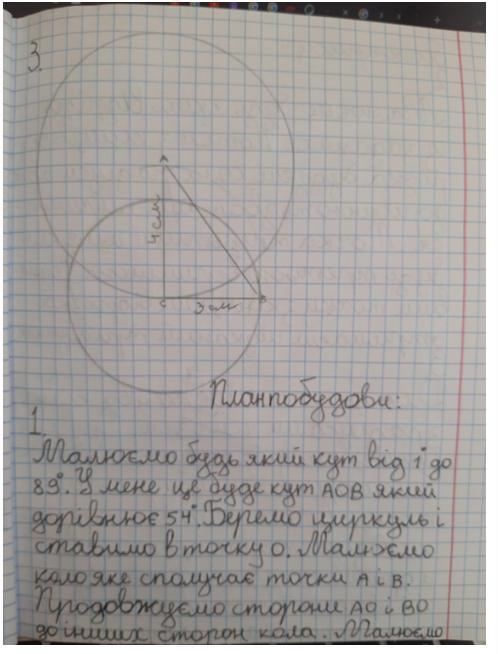 3.
A
4 см
C
3 см
B
План побудови:
1.
Малюємо будь який кут від 1° до
89°. У мене це буде кут AOB який
дорівнює 54°. Беремо циркуль і
ставимо в точку O. Малюємо
коло яке сполучає точки A і B.
Продовжуємо сторони AO і BO
до інших сторон кола. Малюємо